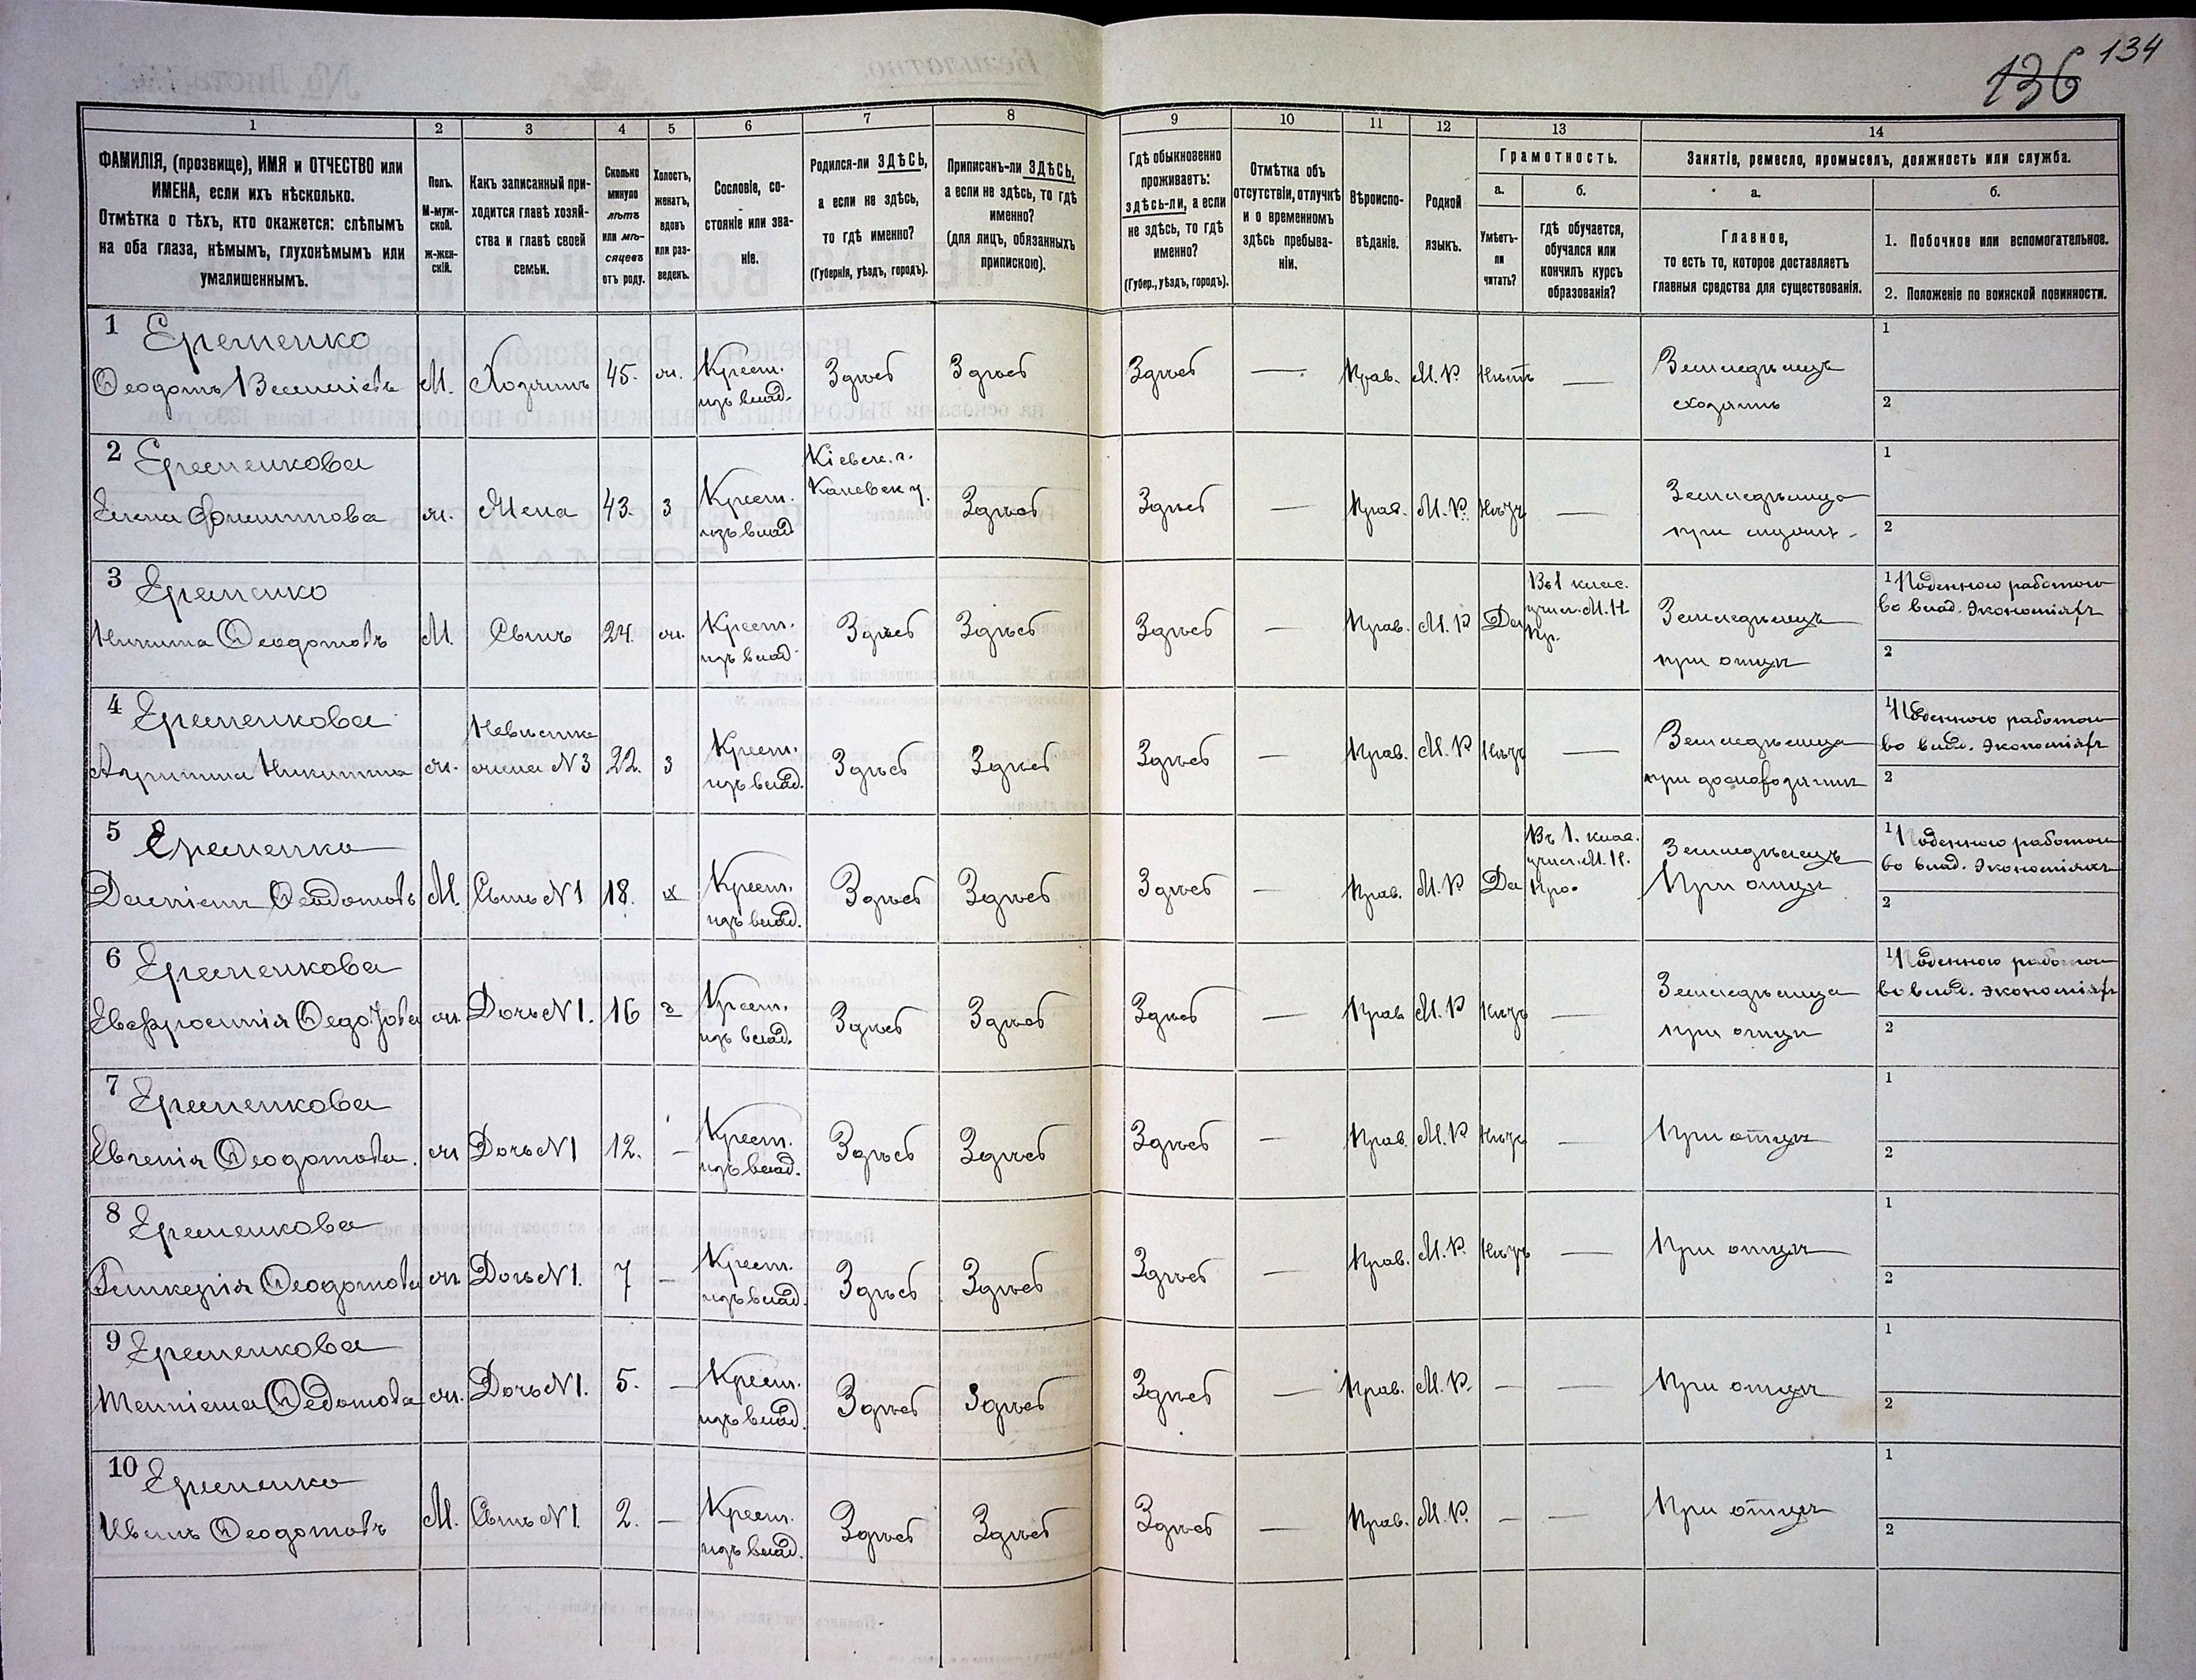 134
136
1
2
3
4
5
6
7
8
9
10
11
12
13
14
ФАМИЛІЯ, (прозвище), ИМЯ и ОТЧЕСТВО или
ИМЕНА, если ихъ нѣсколько.
Отмѣтка о тѣхъ, кто окажется: слѣпымъ
на оба глаза, нѣмымъ, глухонѣмымъ или
умалишеннымъ.
Полъ.
М-муж-
ской.
ж-жен-
скій.
Какъ записанный при-
ходится главѣ хозяй-
ства и главѣ своей
семьи.
Сколько
минуло
лѣтъ
или мѣ-
сяцевъ
отъ роду.
Холостъ,
женатъ,
вдовъ
или раз-
веденъ.
Сословіе, со-
стояніе или зва-
ніе.
Родился-ли ЗДѢСЬ,
а если не здѣсь,
то гдѣ именно?
(Губернія, уѣздъ, городъ).
Приписанъ-ли ЗДѢСЬ,
а если не здѣсь, то гдѣ
именно?
(для лицъ, обязанныхъ
припискою).
Гдѣ обыкновенно
проживаетъ:
здѣсь-ли, а если
не здѣсь, то гдѣ
именно?
(Губер., уѣздъ, городъ).
Отмѣтка объ
отсутствіи, отлучкѣ
и о временномъ
здѣсь пребыва-
ніи.
Вѣроиспо-
вѣданіе.
Родной
языкъ.
Грамотность.
а.
б.
Умѣетъ-
ли
читать?
гдѣ обучается,
обучался или
кончилъ курсъ
образованія?
Занятіе, ремесло, промыселъ, должность или служба.
а.
б.
Главное,
то есть то, которое доставляетъ
главныя средства для существованія.
1. Побочное или вспомогательное.
2. Положеніе по воинской повинности.
1 Еременко
Ѳеодотъ Василіевъ М. Хозяинъ 45. ж. Крест. изъ влад. Здѣсь Здѣсь Здѣсь — Прав. М. Р. Нѣтъ — Земледѣлецъ
хозяинъ
1
2
2 Еременкова
Елена Филиппова ж. Жена 43. з Крест. изъ влад. Кіевск. г. Каневск у. Здѣсь Здѣсь — Прав. М. Р. Нѣтъ — Земледѣлица
при
1
2
3 Еременко
Никита Ѳеодотовъ М. Сынъ 24. ж. Крест. изъ влад. Здѣсь Здѣсь Здѣсь — Прав. М. Р Да Въ 1 клас. учил. М. Н. Пр. Земледѣлецъ
при отцѣ
1 Поденною работою
во влад. экономіяхъ
2
4 Еременкова
Агрипина Никитина ж. Невѣстка жена N 3 22. з Крест. изъ влад. Здѣсь Здѣсь Здѣсь — Прав. М. Р Нѣтъ — Земледѣлица
при домохозяинѣ
1 Поденною работою
во влад. экономіяхъ
2
5 Еременко
Даніилъ Ѳеодотовъ М. Сынъ N 1 18. х Крест. изъ влад. Здѣсь Здѣсь Здѣсь — Прав. М. Р Да Въ 1. клас. учил. М. Н. Про. Земледѣлецъ
При отцѣ
1 Поденною работою
во влад. экономіяхъ
2
6 Еременкова
Евфросинія Ѳеодотова ж. Дочь N 1. 16 Крест. изъ влад. Здѣсь Здѣсь Здѣсь — Прав М. Р Нѣтъ — Земледѣлица
при отцѣ
1 Поденною работою
во влад. экономіяхъ
2
7 Еременкова
Евгенія Ѳеодотова. ж Дочь N 1 12. — Крест. изъ влад. Здѣсь Здѣсь Здѣсь — Прав. М. Р Нѣтъ — При отцѣ
1
2
8 Еременкова
Гликерія Ѳеодотова ж Дочь N 1. 7 — Крест. изъ влад. Здѣсь Здѣсь Здѣсь — Прав. М. Р. Нѣтъ — При отцѣ
1
2
9 Еременкова
Ѳедотова ж. Дочь N 1. 5. — Крест. изъ влад. Здѣсь Здѣсь Здѣсь — Прав. М. Р. — — При отцѣ
1
2
10 Еременко
Иванъ Ѳеодотовъ М. Сынъ N 1. 2. — Крест. изъ влад. Здѣсь Здѣсь Здѣсь — Прав. М. Р. — — При отцѣ
1
2